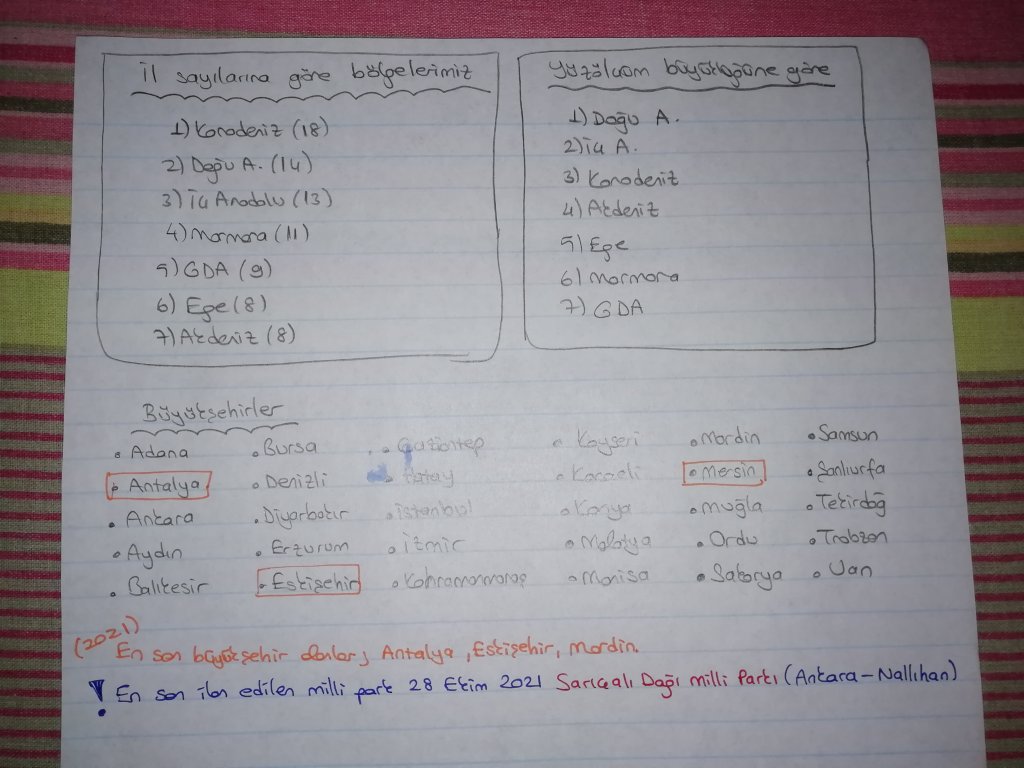 İl sayılarına göre bölgelerimiz
1) Karadeniz (18)
2) Doğu A. (14)
3) İç Anadolu (13)
4) Marmara (11)
5) GDA (9)
6) Ege (8)
7) Akdeniz (8)
Yüzölçüm büyüklüğüne göre
1) Doğu A.
2) İç A.
3) Karadeniz
4) Akdeniz
5) Ege
6) Marmara
7) GDA
Büyükşehirler
• Adana • Bursa • Gaziantep • Kayseri • Mardin • Samsun
• Antalya • Denizli • Hatay • Kocaeli • Mersin • Şanlıurfa
• Ankara • Diyarbakır • İstanbul • Konya • Muğla • Tekirdağ
• Aydın • Erzurum • İzmir • Malatya • Ordu • Trabzon
• Balıkesir • Eskişehir • Kahramanmaraş • Manisa • Sakarya • Van
(2021)
En son büyükşehir olanlar; Antalya, Eskişehir, Mardin.
! En son ilan edilen milli park 28 Ekim 2021 Sarıçalı Dağı milli Parkı (Ankara-Nallıhan)